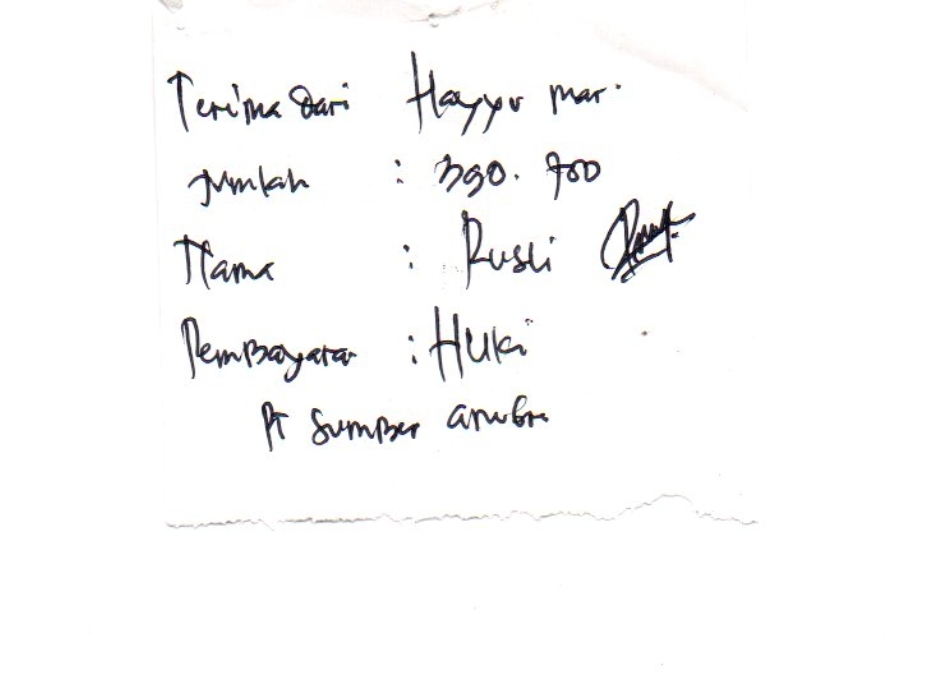 Terima Dari Hayyu mar.
Jumlah : 390.
Nama : Rusli
Pembayara : Huki
PT Sumber